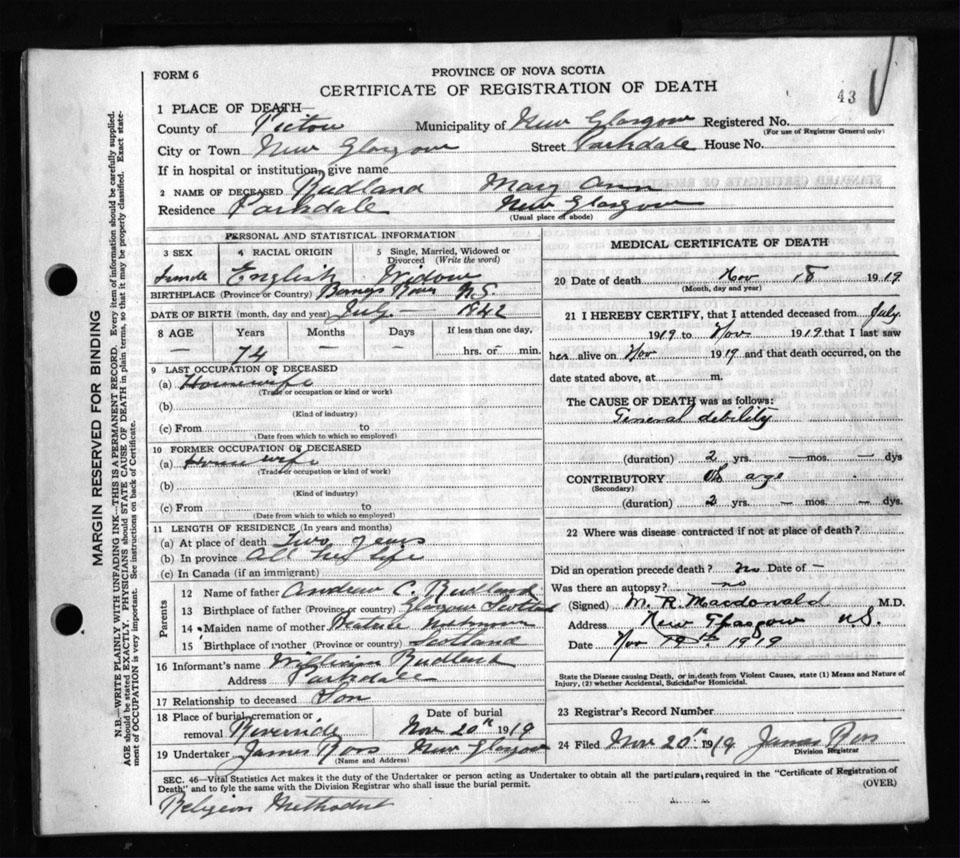 FORM 6
PROVINCE OF NOVA SCOTIA
CERTIFICATE OF REGISTRATION OF DEATH
43
1 PLACE OF DEATH—
County of Pictou Municipality of New Glasgow Registered No.
(For use of Registrar General only)
City or Town New Glasgow Street Parkdale House No.
If in hospital or institution, give name
2 NAME OF DECEASED Rudland Mary Ann
Residence Parkdale New Glasgow
(Usual place of abode)
PERSONAL AND STATISTICAL INFORMATION
3 SEX 4 RACIAL ORIGIN 5 Single, Married, Widowed or Divorced (Write the word)
Female English Widow
BIRTHPLACE (Province or Country) Barneys River N.S.
DATE OF BIRTH (month, day and year) July — 1842
8 AGE Years Months Days If less than one day,
— 74 — — hrs. or — min.
9 LAST OCCUPATION OF DECEASED
(a) Housewife
(Trade or occupation or kind or work)
(b)
(Kind of industry)
(c) From to
(Date from which to which so employed)
10 FORMER OCCUPATION OF DECEASED
(a) Housewife
(Trade or occupation or kind of work)
(b)
(Kind of industry)
(c) From to
(Date from which to which so employed)
11 LENGTH OF RESIDENCE (In years and months)
(a) At place of death Two years
(b) In province All her life
(c) In Canada (if an immigrant)
Parents
12 Name of father Andrew C. Rudland
13 Birthplace of father (Province or country) Glasgow Scotland
14 Maiden name of mother
15 Birthplace of mother (Province or country) Scotland
16 Informant's name William Rudland
Address Parkdale
17 Relationship to deceased Son
18 Place of burial, cremation or removal Riverside Date of burial Nov 20th 1919
19 Undertaker James Ross New Glasgow
(Name and Address)
MEDICAL CERTIFICATE OF DEATH
20 Date of death Nov 18 1919
(Month, day and year)
21 I HEREBY CERTIFY, that I attended deceased from July
1919 to Nov 1919 that I last saw
her alive on Nov 1919 and that death occurred, on the
date stated above, at m.
The CAUSE OF DEATH was as follows:
General debility
(duration) 2 yrs. — mos. — dys
CONTRIBUTORY Old age
(Secondary)
(duration) 2 yrs. — mos. — dys.
22 Where was disease contracted if not at place of death?
Did an operation precede death? no Date of —
Was there an autopsy? no
(Signed) M. R. Macdonald M.D.
Address New Glasgow N.S.
Date Nov 19th 1919
State the Disease causing Death, or in death from Violent Causes, state (1) Means and Nature of
Injury, (2) whether Accidental, Suicidal or Homicidal.
23 Registrar's Record Number
24 Filed Nov 20th 1919 James Ross
Division Registrar
SEC. 46—Vital Statistics Act makes it the duty of the Undertaker or person acting as Undertaker to obtain all the particulars, required in the "Certificate of Registration of
Death" and to fyle the same with the Division Registrar who shall issue the burial permit. (OVER)
Religion Methodist
MARGIN RESERVED FOR BINDING
N.B.—WRITE PLAINLY WITH UNFADING INK—THIS IS A PERMANENT RECORD. Every item of information should be carefully supplied.
AGE should be stated EXACTLY. PHYSICIANS should STATE CAUSE OF DEATH in plain terms, so that it may be properly classified. Exact state-
ment of OCCUPATION is very important. See instructions on back of Certificate.